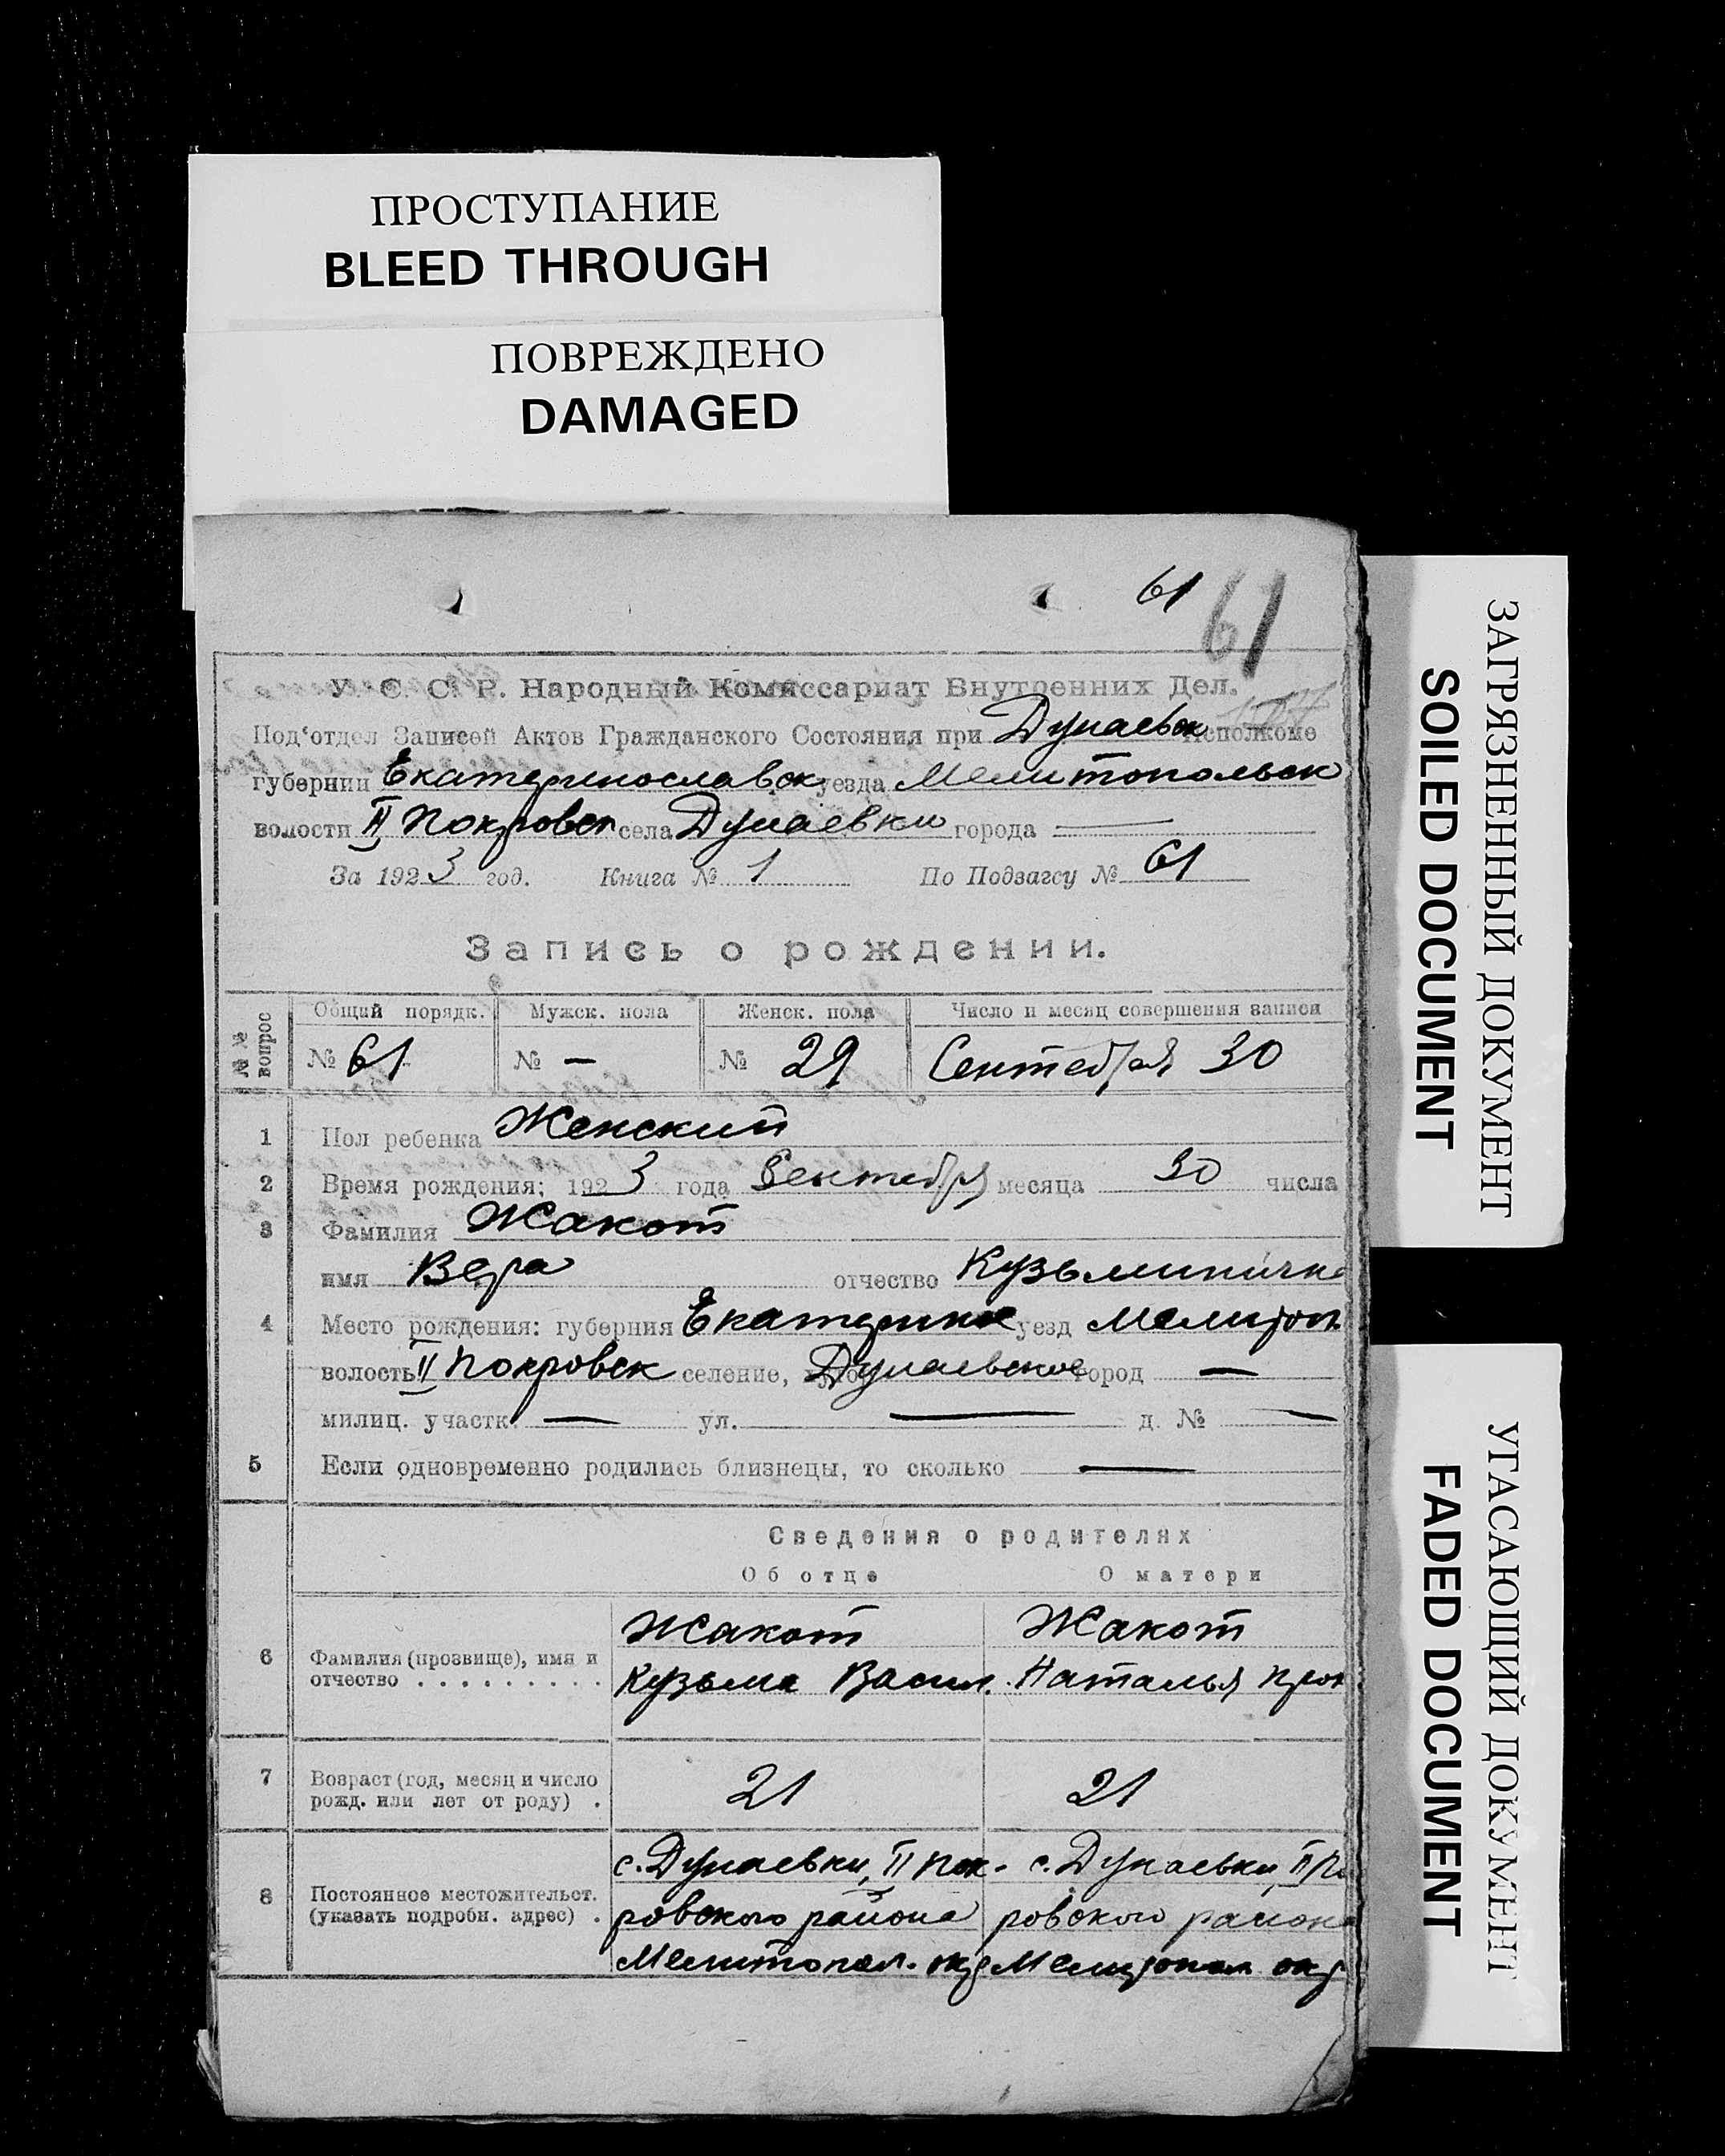 ПРОСТУПАНИЕ
BLEED THROUGH
ПОВРЕЖДЕНО
DAMAGED
61 61
У. С. С. Р. Народный Комиссариат Внутренних Дел.
Под'отдел Записей Актов Гражданского Состояния при Дунаевск Исполкоме
губернии Екатеринославск уезда Мелитопольск
волости II Покровск села Дунаевки города —
За 1923 год. Книга № 1 По Подзагсу № 61
Запись о рождении.
№№ вопрос Общий порядк. Мужск. пола Женск. пола Число и месяц совершения записи
№ 61 № — № 29 Сентебря 30
1 Пол ребенка Женский
2 Время рождения: 1923 года Сентебря месяца 30 числа
3 Фамилия Жакот
имя Вера отчество Кузьминична
4 Место рождения: губерния Екатерино уезд Мелитоп
волость II Покровск селение, Дунаевское город —
милиц. участк. — ул. — д. № —
5 Если одновременно родились близнецы, то сколько —
Сведения о родителях
Об отце О матери
6 Фамилия (прозвище), имя и отчество . . . . . . . . .
Жакот Жакот
Кузьма Васил. Наталья Прок
7 Возраст (год, месяц и число рожд. или лет от роду) . 21 21
8 Постоянное местожительст. (указать подробн. адрес) .
с. Дунаевки, II Пок- с. Дунаевки, II По
ровского района ровского района
Мелитопол. окр Мелитопол окр
ЗАГРЯЗНЕННЫЙ ДОКУМЕНТ
SOILED DOCUMENT
УГАСАЮЩИЙ ДОКУМЕНТ
FADED DOCUMENT